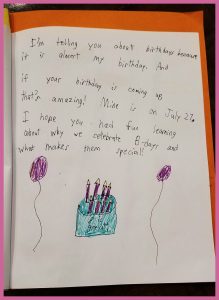 I'm telling you about birthdays because
it is almost my birthday. And
if your birthday is coming up
that's amazing! Mine is on July 27.
I hope you had fun learning
about why we celebrate B-days and
what makes them special!